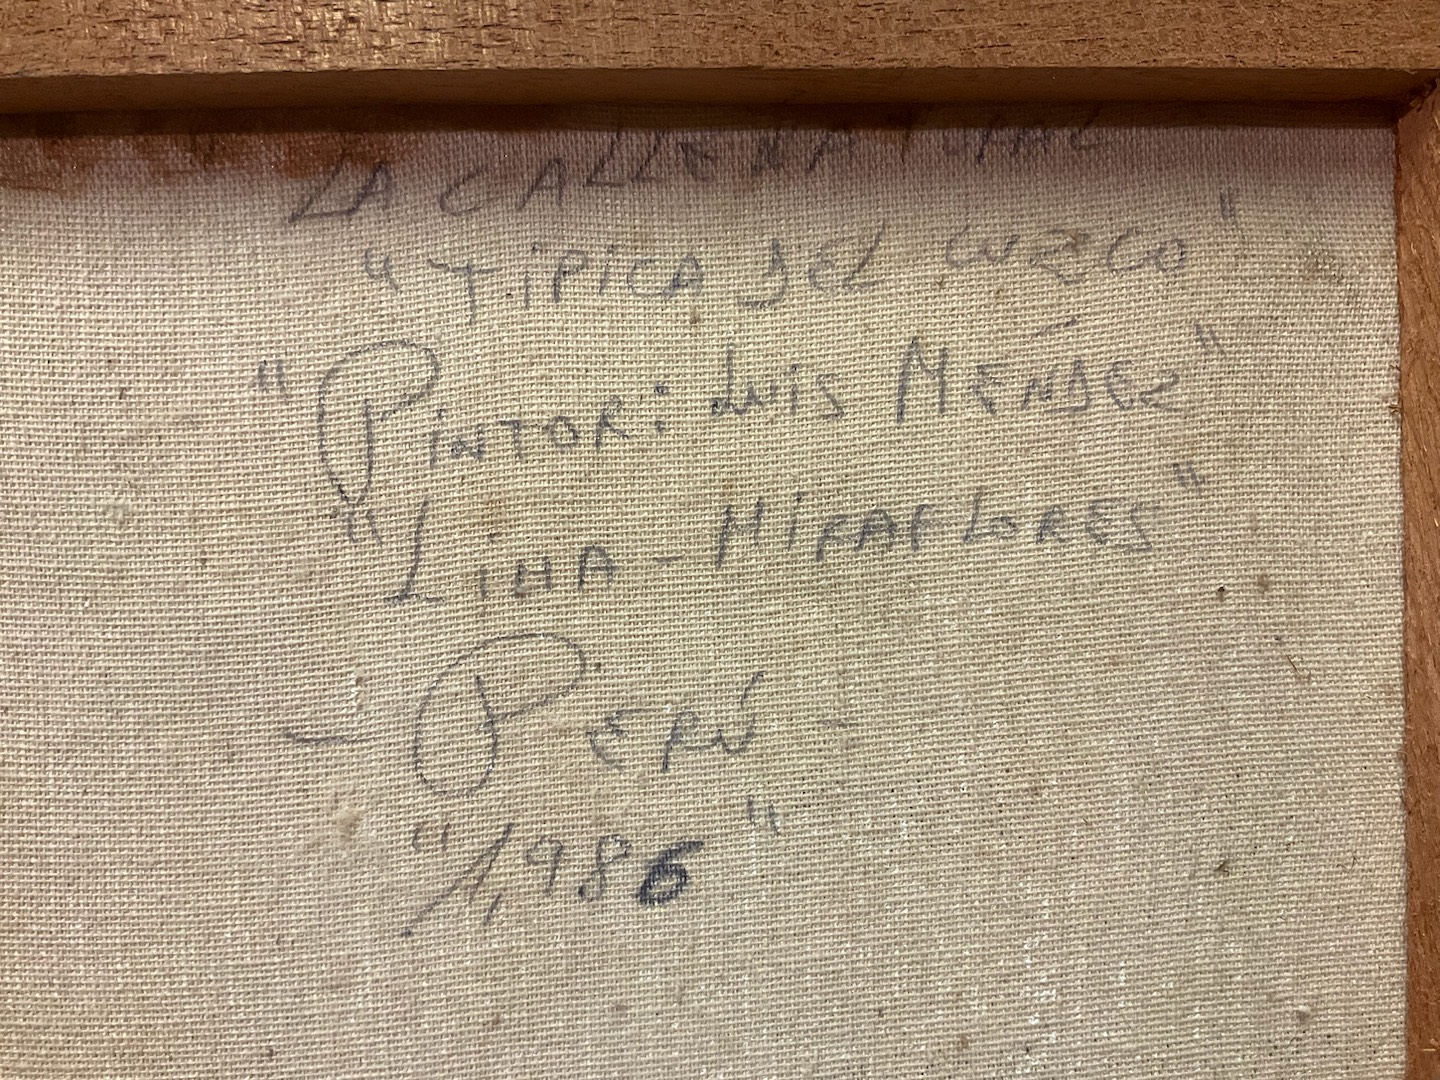 LA CALLE NATURAL
"TÍPICA DEL CUZCO"
"PINTOR: LUIS MÉNDEZ"
"LIMA - MIRAFLORES"
- PERÚ -
"1,986"